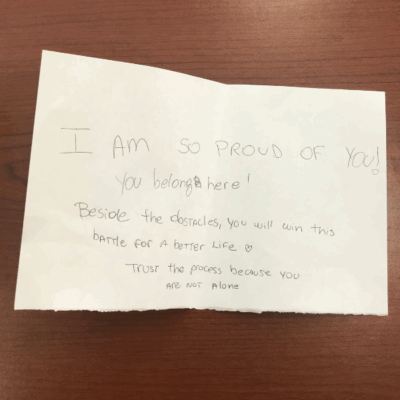 I AM SO PROUD OF YOU!
You belong here!
Beside the obstacles, you will win this
battle for a better life ♡
Trust the process because you
are not alone